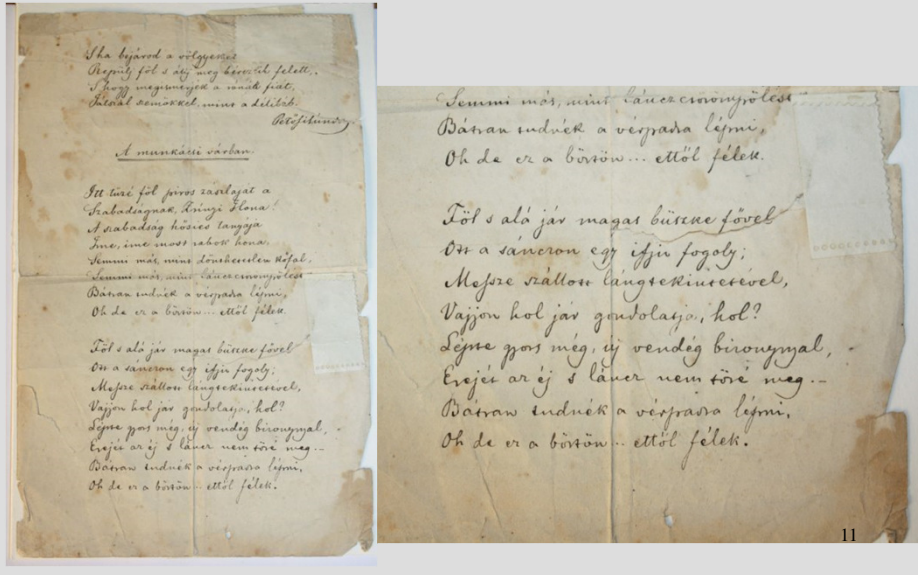 S ha bejárod a völgyeket
Repülj föl s állj meg felett,
S hogy megismerjék a rónák fiát,
mint a délibáb.
Petőfi Sándor
A munkácsi várban.
Itt tűzé föl piros zászlaját a
Szabadságnak, Zrínyi Ilona!
A szabadság hősies tanyája
Ime, ime most rabok hona.
Semmi más, mint dönthetetlen kőfal,
Semmi más, mint lánczcsörömpölést
Bátran tudnék a vérpadra lépni,
Oh de ez a börtön... ettől félek.
Föl s alá jár magas büszke fővel
Ott a sánczon egy ifju fogoly;
Messze szállott lángtekintetével,
Vajjon hol jár gondolatja, hol?
Lépte gyors még, uj vendég bizonynyal,
Erejét az éj s láncz nem töré meg...
Bátran tudnék a vérpadra lépni,
Oh de ez a börtön... ettől félek.
Semmi más, mint lánczcsörömpölést
Bátran tudnék a vérpadra lépni,
Oh de ez a börtön... ettől félek.
Föl s alá jár magas büszke fővel
Ott a sánczon egy ifju fogoly;
Messze szállott lángtekintetével,
Vajjon hol jár gondolatja, hol?
Lépte gyors még, uj vendég bizonynyal,
Erejét az éj s láncz nem töré meg...
Bátran tudnék a vérpadra lépni,
Oh de ez a börtön... ettől félek.
11